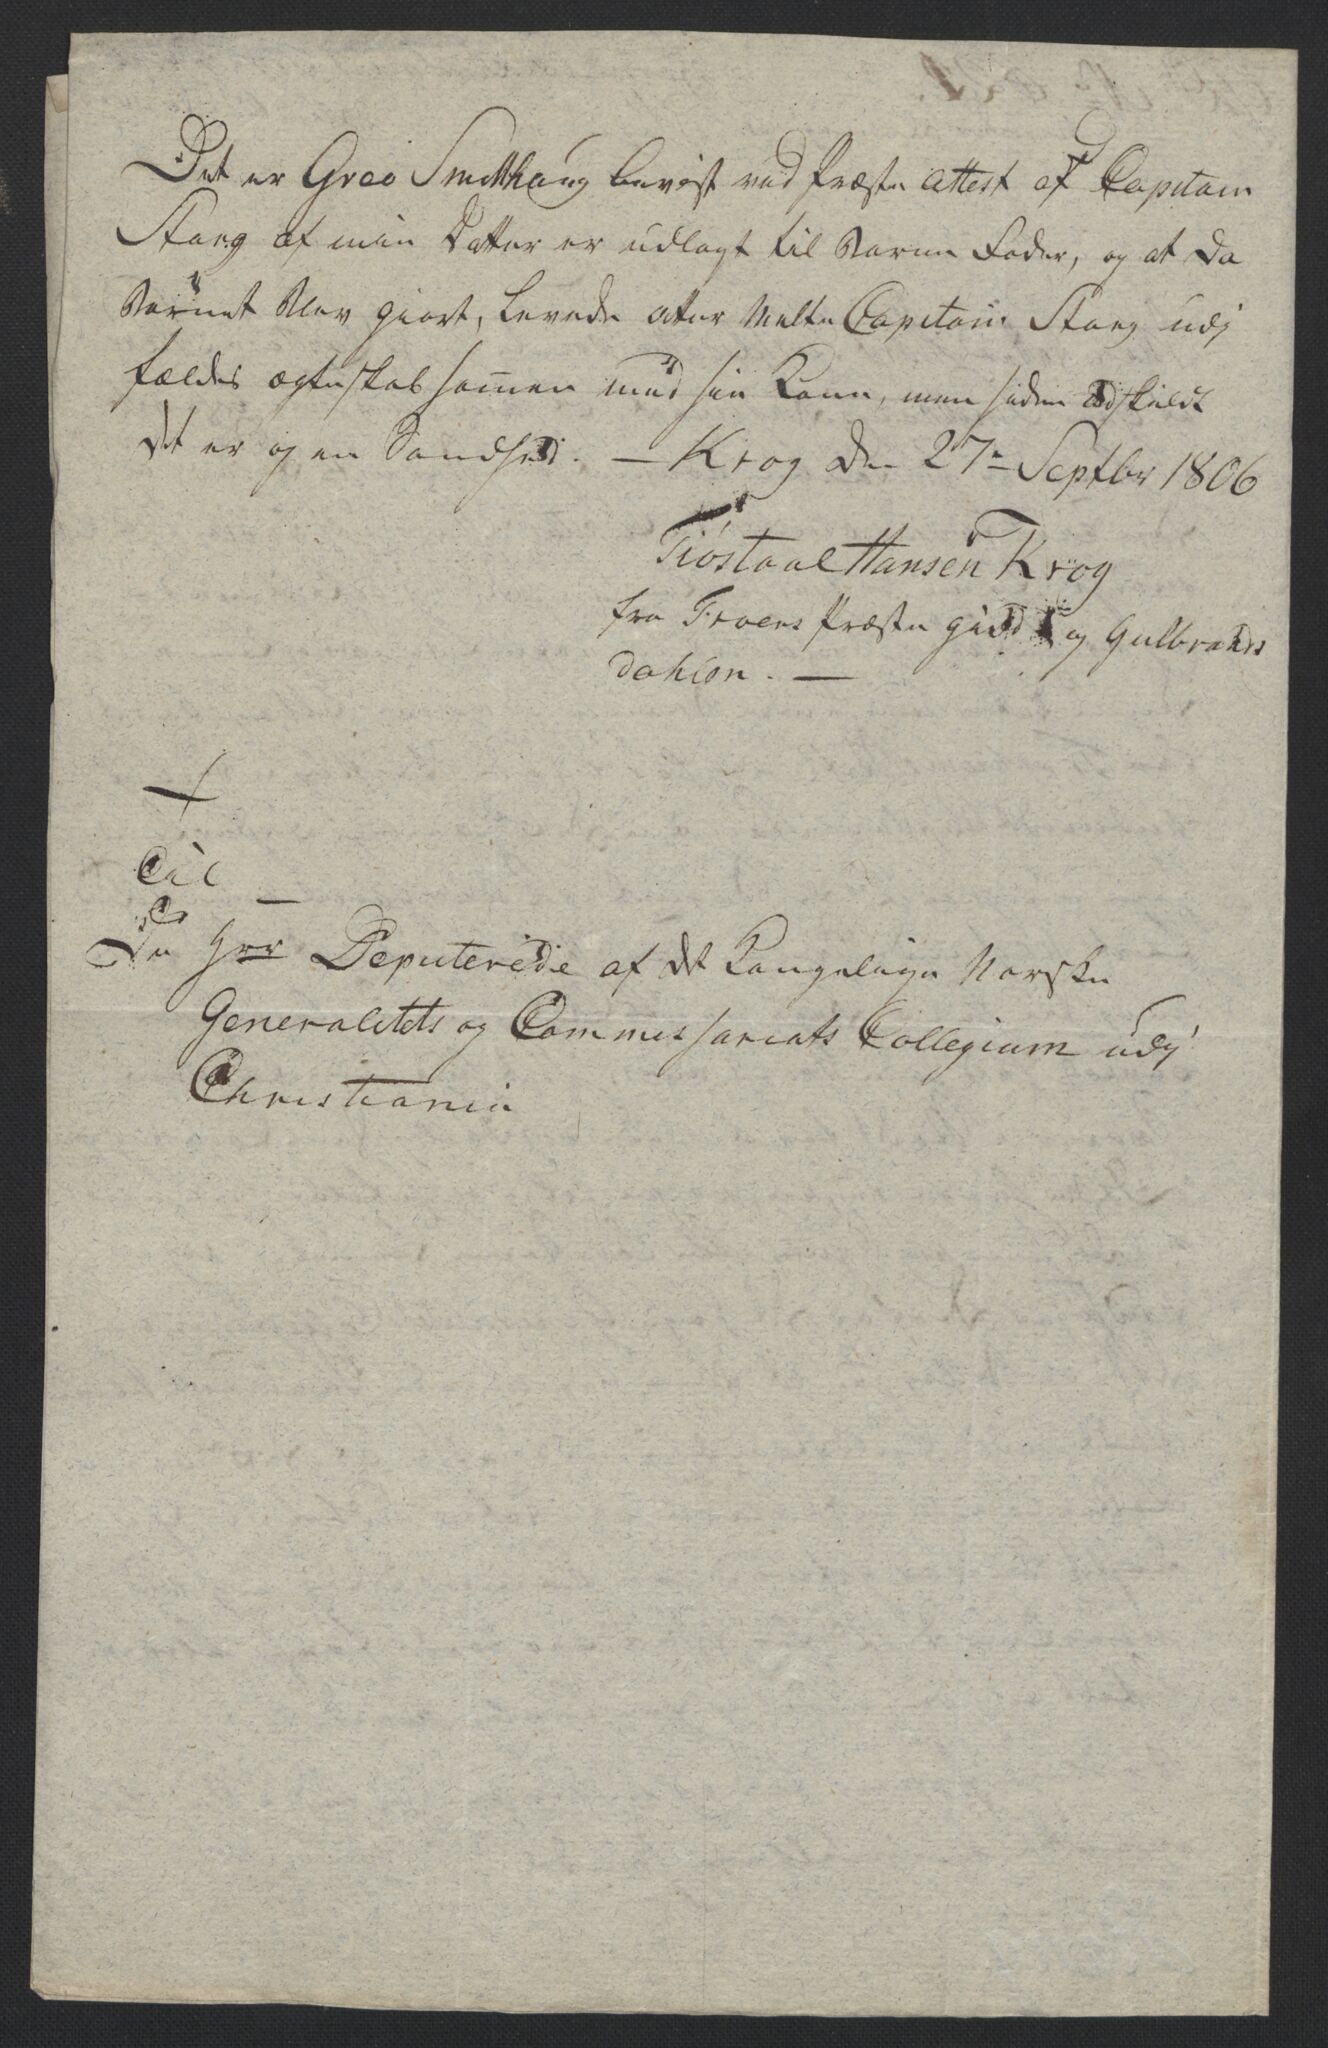 Det er Greo Smithaug bevist ved Præste attest af Capitain
Stang af min Datter er udlagt til Barne Fader, og at da
Barnet blev giort, levede atter Melte Capitain Stang udj
fældes ægteskab sammen med sin Kone, men siden adskildt
det er og en Sandhed. — Krog den 27n Septbr 1806
Tiøstaal Hansen Krog
fra Froens Præste gield og Gulbrands
dahlen. —
Til
De Hrr Deputerede af det Kongelige Norske
Generalitets og Commissariats Collegium udj
Christiania